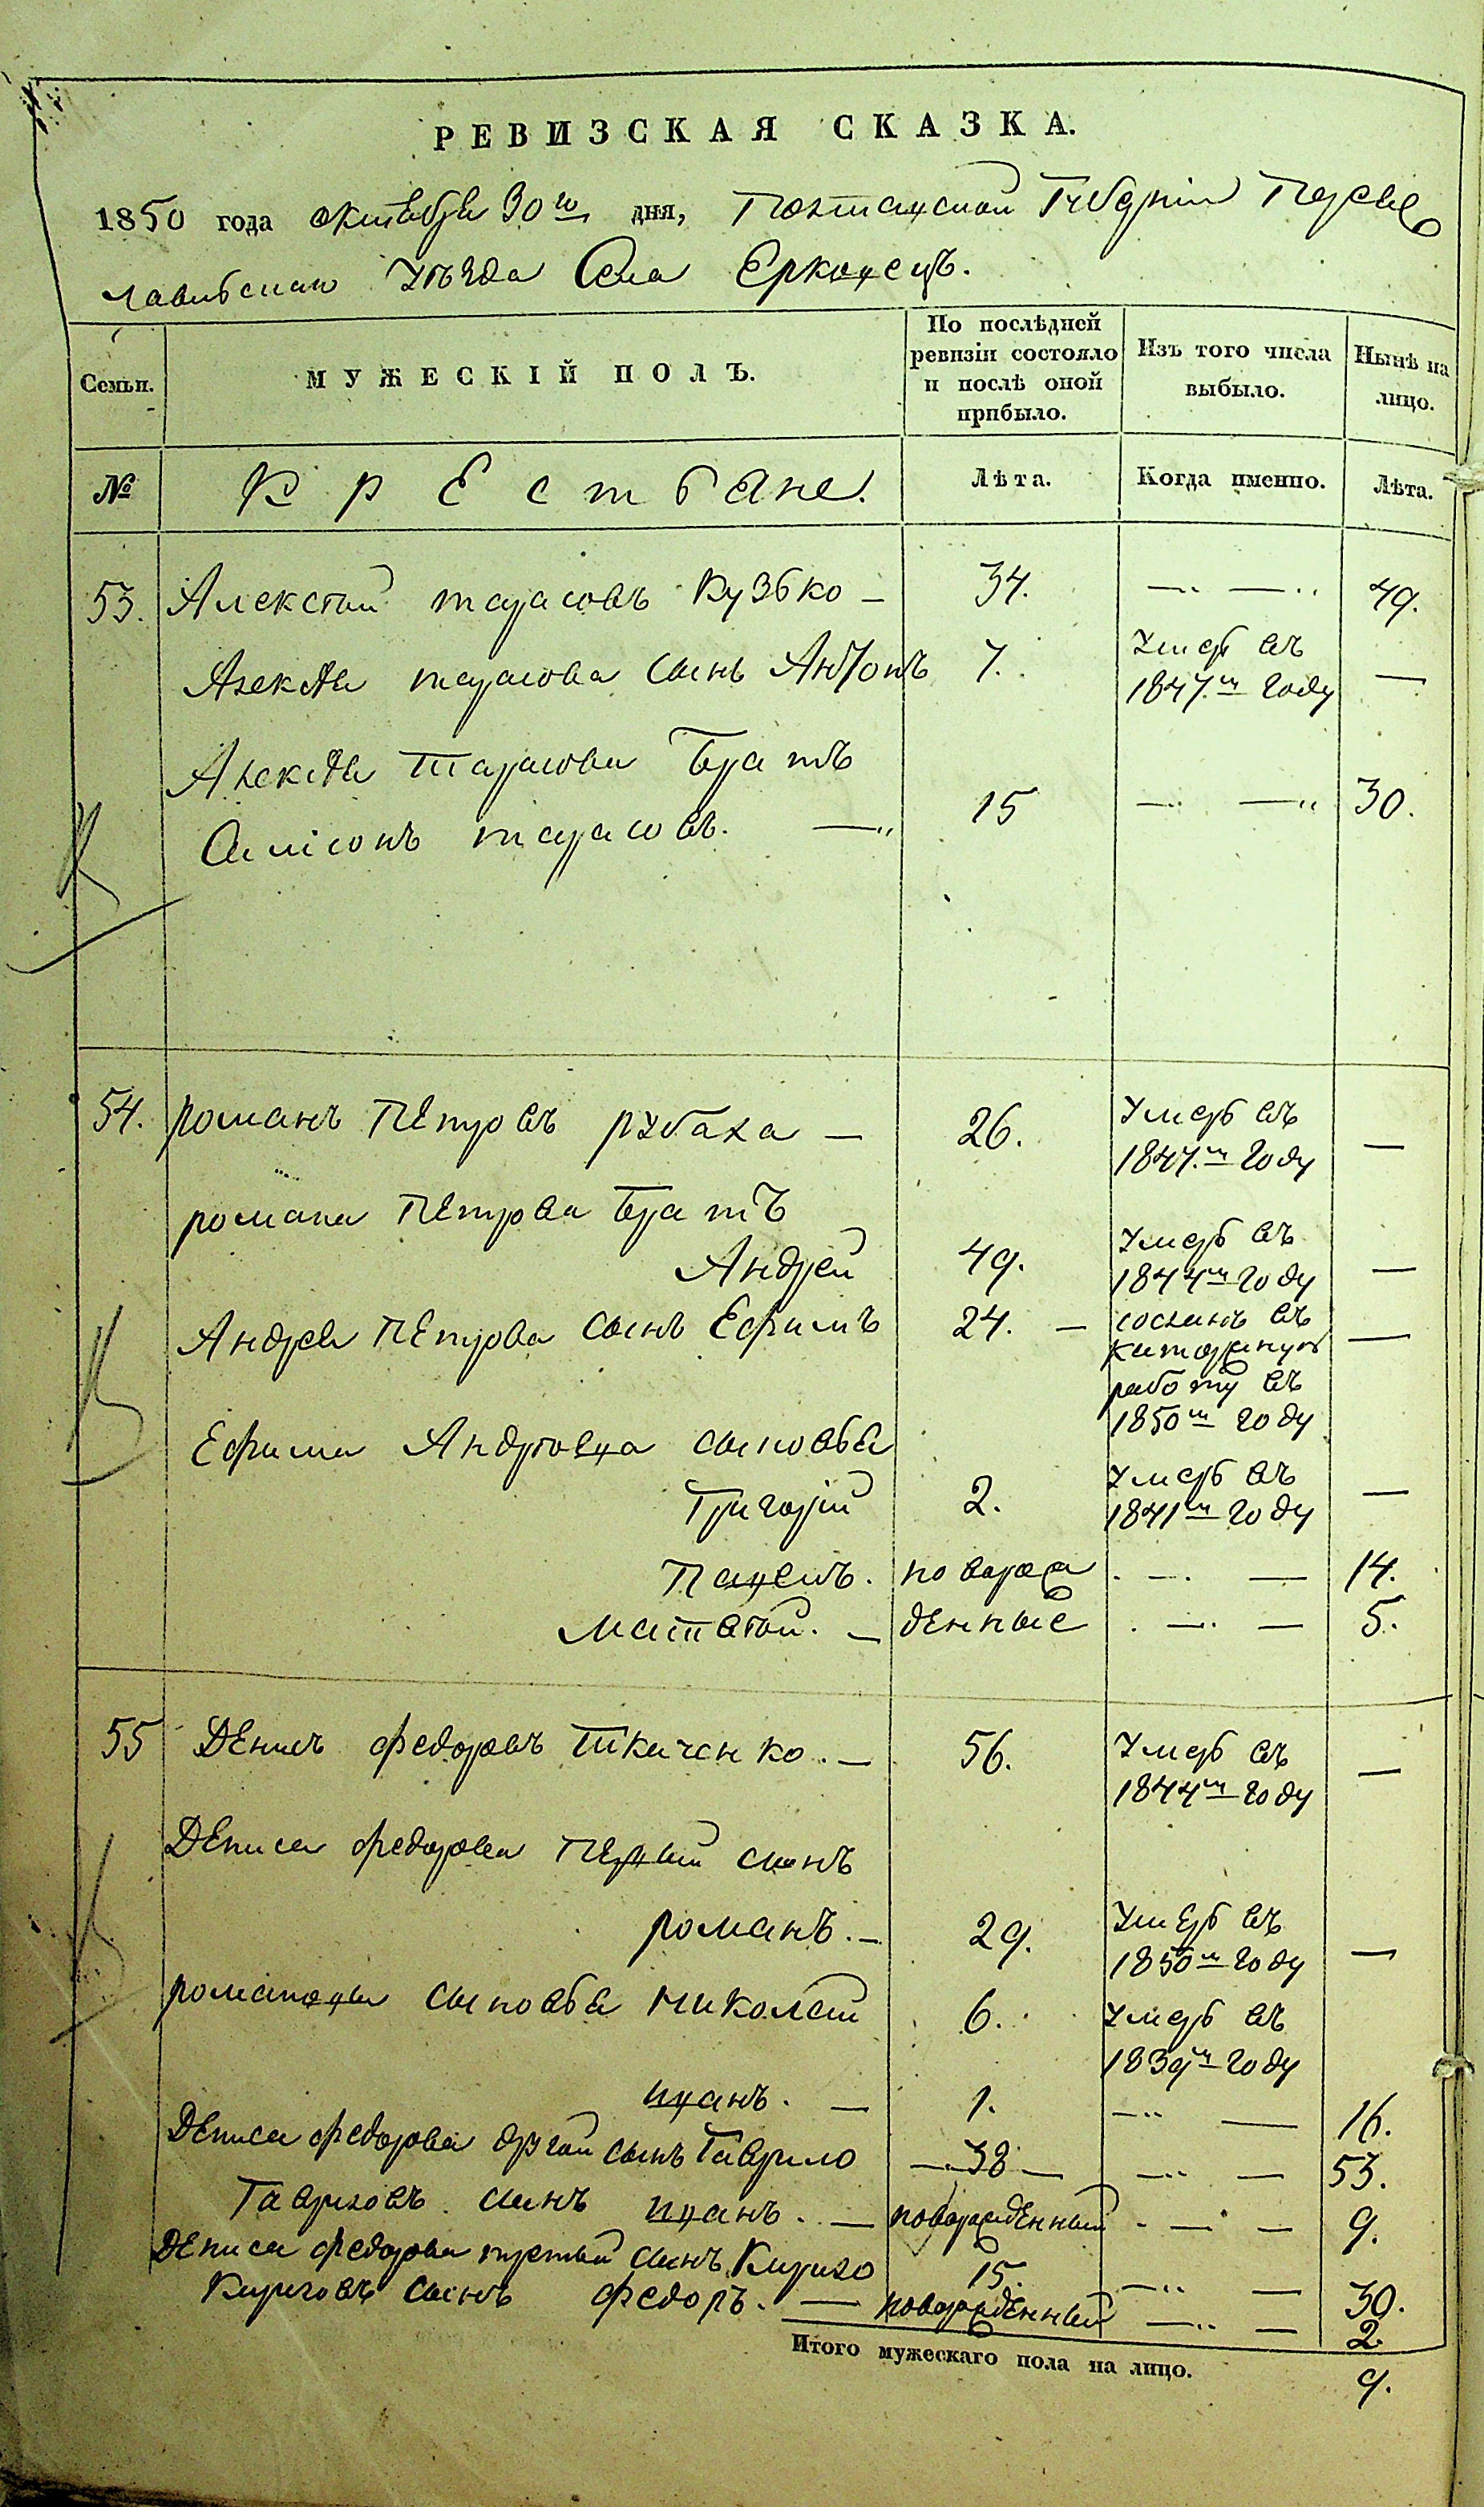 РЕВИЗСКАЯ СКАЗКА.
1850 года октября 30го дня, Полтавской Губернiи Переяс
лавскаго Уѣзда Села Ерковецъ.
Семьи. МУЖЕСКIЙ ПОЛЪ. По послѣдней ревизiи состояло и послѣ оной прибыло. Изъ того числа выбыло. Нынѣ на лицо.
№ Крестьяне. Лѣта. Когда именно. Лѣта.
53. Алексѣй тарасовъ Кузько — 34. —〃 —〃 49.
Алексѣя тарасова сынъ Антонъ 7. Умеръ въ 1847м году —
Алексѣя Тарасова Братъ
Самсонъ тарасовъ. —〃 15 —〃 —〃 30.
54. романъ Петровъ рубаха — 26. Умеръ въ 1847м году —
романа Петрова Братъ
Андрей 49. Умеръ въ 1844м году —
Андрея Петрова сынъ Ефимъ 24. — сосланъ въ каторжную работу въ 1850м году —
Ефима Андреева сыновья
Григорiй 2. Умеръ въ 1841м году —
Павелъ. новорож — — 14.
Матвѣй. — денные — — 5.
55 Денисъ федоровъ Ткаченко. — 56. Умеръ въ 1844м году —
Дениса федорова Первый сынъ
романъ. — 29. Умеръ въ 1850м году —
романовы сыновья Николай 6. Умеръ въ 1839м году
иванъ. — 1. —〃 — 16.
Дениса федорова другой сынъ Гаврило — 38 — —〃 — 53.
Гавриловъ сынъ иванъ. — новорожденный — — 9.
Дениса федорова третий сынъ Кирило 15. —〃 — 30.
Кириловъ сынъ федоръ. — новорожденный —〃 — 2.
Итого мужескаго пола на лицо. 9.